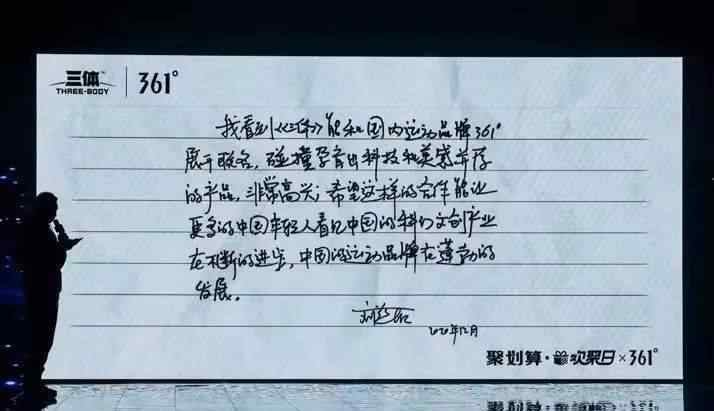 三体
THREE-BODY
361°
我看到《三体》能和国内运动品牌361°
展开联名，碰撞孕育出科技和美感并存
的产品，非常高兴；希望这样的合作能让
更多的中国年轻人看见中国的科幻文创产业
在不断的进步，中国的运动品牌在蓬勃的
发展。
刘慈欣
2020年12月
聚划算·首次聚日×361°